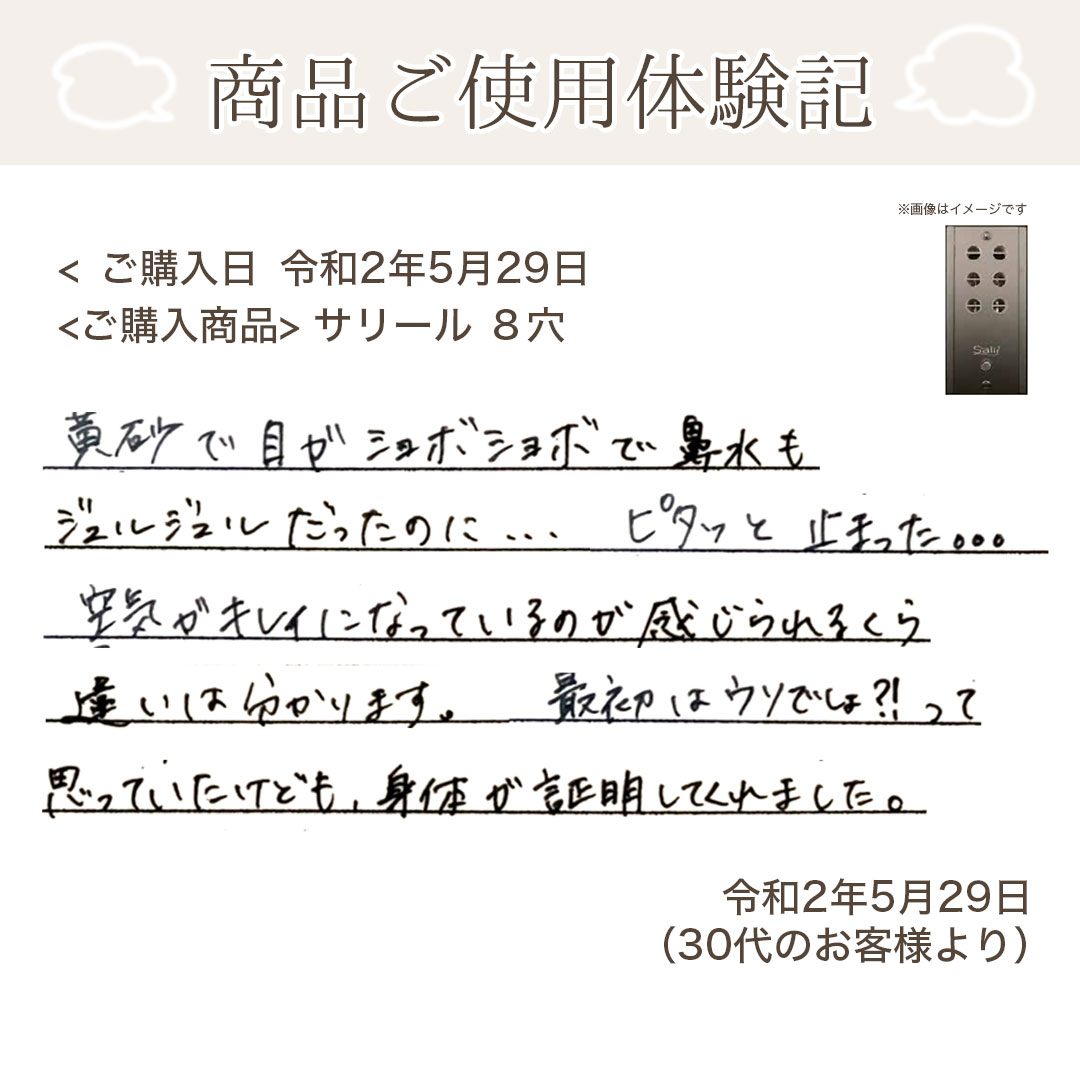 商品ご使用体験記
※画像はイメージです
< ご購入日 令和2年5月29日
<ご購入商品> サリール 8穴
黄砂で目がショボショボで鼻水も
ジュルジュルだったのに... ピタッと止まった...
空気がキレイになっているのが感じられるくら
違いは分かります。 最初はウソでしょ?!って
思っていたけども、身体が証明してくれました。
令和2年5月29日
(30代のお客様より)